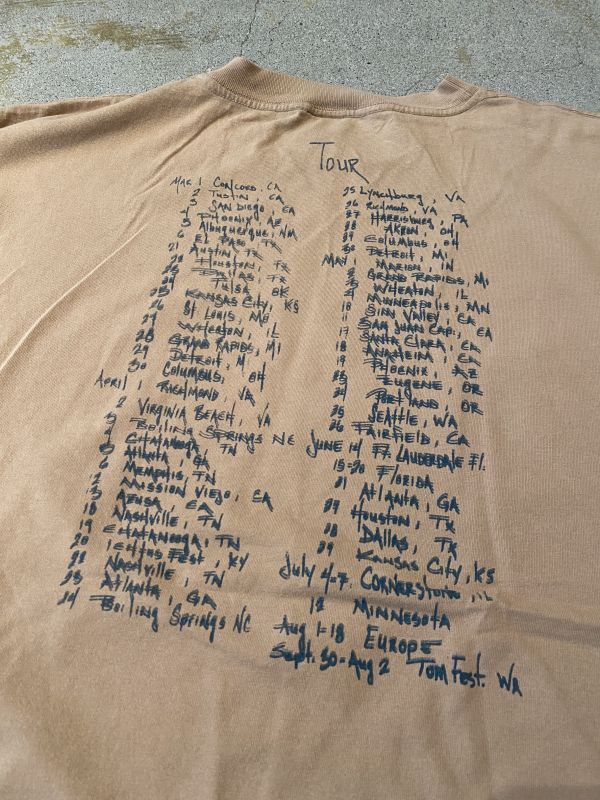 Tour
Mar. 1 Concord, CA
2 Tustin, CA
3 San Diego, CA
4 Phoenix, AZ
5 Albuquerque, NM
6 El Paso, TX
21 Austin, TX
Houston, TX
Dallas, TX
Tulsa, OK
25 Kansas City, KS
26 St Louis, MO
Wheaton, IL
28 Grand Rapids, MI
29 Detroit, MI
30 Columbus, OH
April 1 Richmond, VA
2 Virginia Beach, VA
Boiling Springs NC
Chatanooga, TN
Atlanta, GA
6 Memphis, TN
Mission Viejo, CA
Azusa, CA
18 Nashville, TN
19 Chatanooga, TN
20 Ichthus Fest, KY
22 Nashville, TN
23 Atlanta, GA
24 Boiling Springs NC
25 Lynchburg, VA
26 Richmond, VA
27 Harrisburg, PA
28 Akron, OH
29 Columbus, OH
30 Detroit, MI
May 1 Marion, IN
2 Grand Rapids, MI
Wheaton, IL
Minneapolis, MN
Simi Valley, CA
17 San Juan Cap., CA
18 Santa Clara, CA
18 Anaheim, CA
19 Phoenix, AZ
Eugene, OR
24 Portland, OR
25 Seattle, WA
26 Fairfield, CA
June 14 Ft. Lauderdale Fl.
15-20 Florida
21 Atlanta, GA
27 Houston, TX
28 Dallas, TX
29 Kansas City, KS
July 4-7. Cornerstone, IL
12 Minnesota
Aug 1-18 Europe
Sept. 30-Aug 2 Tom Fest. WA